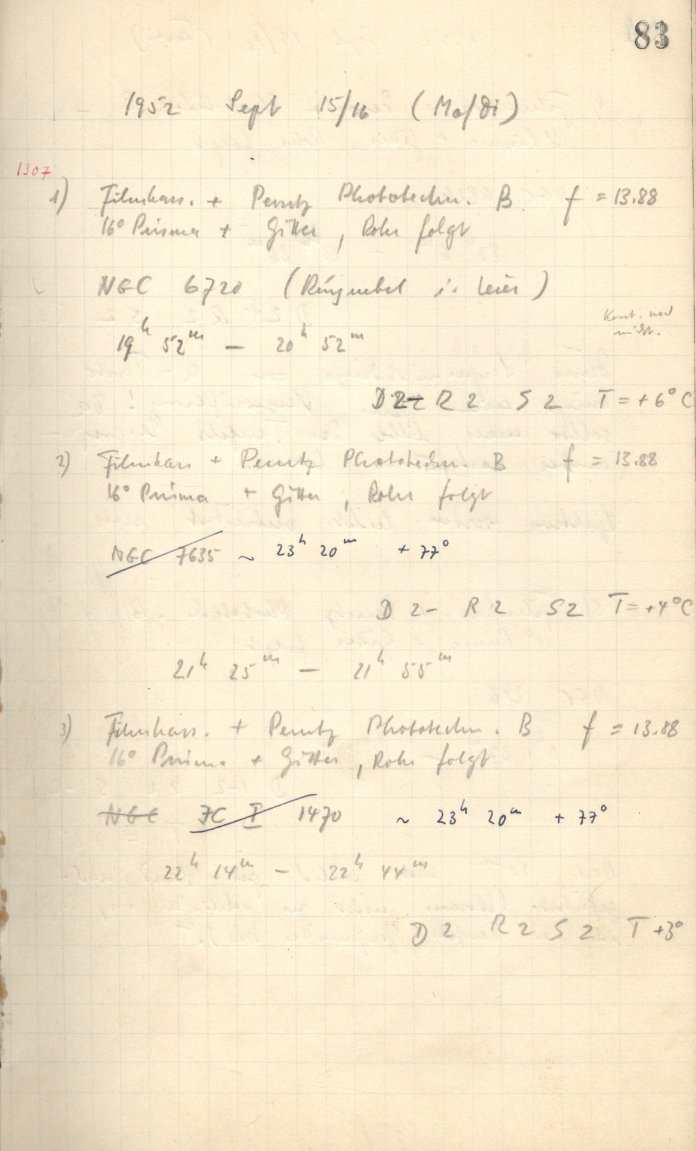 83
1952 Sept 15/16 (Mo/Di)
1307
1) Filmkass. + Perutz Phototechn. B f = 13.88
16° Prisma + Gitter, Rohr folgt
NGC 6720 (Ringnebel i. Leier)
19h 52m — 20h 52m
Kont. und
nicht.
D 2- R 2 S 2 T = +6°C
2) Filmkass + Perutz Phototechn. B f = 13.88
16° Prisma + Gitter, Rohr folgt
NGC 7635 ~ 23h 20m + 77°
D 2- R 2 S 2 T = +4°C
21h 25m — 21h 55m
3) Filmkass. + Perutz Phototechn. B f = 13.88
16° Prisma + Gitter, Rohr folgt
NGC JC I 1470 ~ 23h 20m + 77°
22h 14m — 22h 44m
D 2 R 2 S 2 T +3°